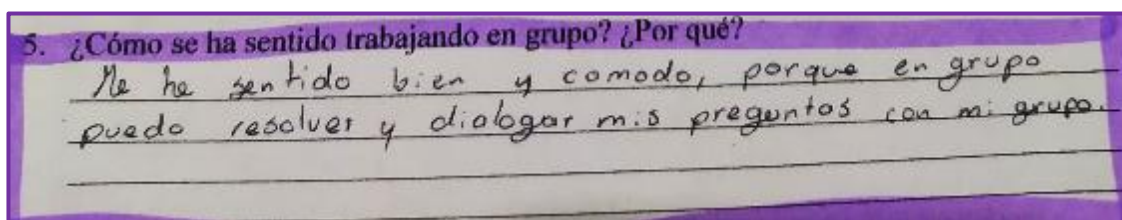 5. ¿Cómo se ha sentido trabajando en grupo? ¿Por qué?
Me he sentido bien y comodo, porque en grupo
puedo resolver y dialogar mis preguntas con mi grupo.